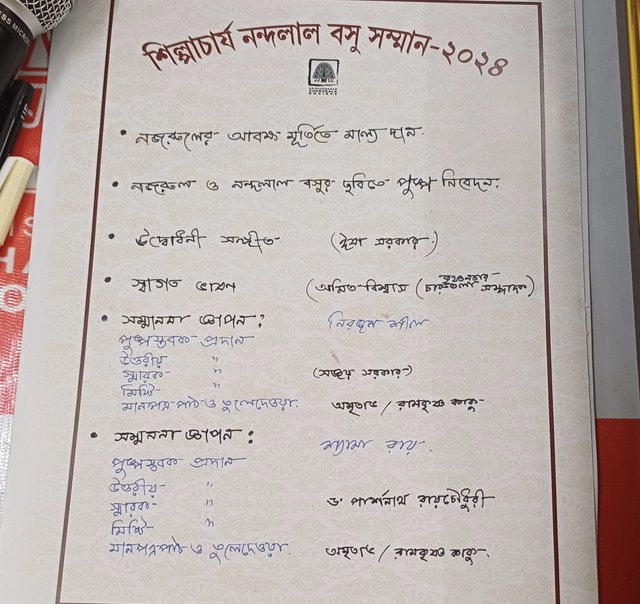 শিল্পাচার্য নন্দলাল বসু সম্মান-২০২৪
• নজরুলের আবক্ষ মূর্তিতে মাল্য দান.
• নজরুল ও নন্দলাল বসুর ছবিতে পুষ্প নিবেদন.
• উদ্বোধনী সঙ্গীত (ঈশা সরকার.)
• স্বাগত ভাষণ (অমিত বিশ্বাস (চারুকলা সম্পাদক)
• সম্মাননা জ্ঞাপন: নিরঞ্জন শীল
পুষ্পস্তবক প্রদান
উত্তরীয় "
স্মারক- " (সঞ্জয় সরকার-)
মিষ্টি- "
মানপত্র পাঠ ও তুলে দেওয়া. অমৃতাভ / রামকৃষ্ণ কাকু-
• সম্মাননা জ্ঞাপন: শ্যামা রায়.
পুষ্পস্তবক প্রদান
উত্তরীয়- "
স্মারক- " ড. পার্শনাথ রায়চৌধুরী
মিষ্টি- "
মানপত্র পাঠ ও তুলে দেওয়া. অমৃতাভ / রামকৃষ্ণ কাকু-.